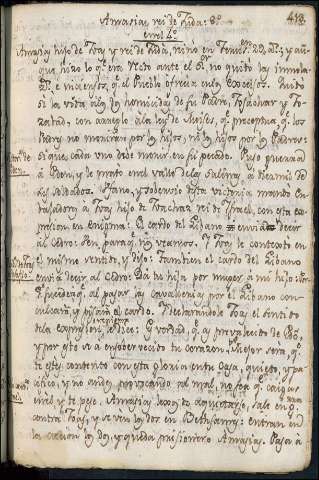 413
Amasias, rei de Juda: 8.º
en el L.º
Amasias hijo de Joas y rei de Juda, reinó en Jerus.n 29. a.s; y aun-
que hizo lo q.e era recto ante el S.r no quitó las inmola-
e inciensos, q.e el Pueblo ofrecia en los excelsos. Quitó
la vida a los homicidas de su Padre, Josachar y Jo-
zabad; con arreglo a la ley de Moises, q.e preceptua q.e los
Padres no moriran por los hijos, ni los hijos por los Padres:
si que cada uno debe morir en su pecado. Puso guerra a
Edom, y de mató en el valle de las Salinas a diez mil de
sus soldados. Ufano, y soberbio de esta victoria mandó Em-
bajadores a Joas hijo de Joachaz rei de Israel, con esta ex-
presion en enigma: El cardo del Libano envia a decir
al cedro: Ven, para q.e nos veamos. Y Joas le contestó en
el mismo sentido, y dijo: Tambien el cardo del Libano
envió decir al cedro: Da tu hija por muger a mi hijo:
q.e al pasar las cavallerias por el Libano con-
culcara y pisara el cardo. Declarandole Joas el sentido
de la expresion, le dice: Es verdad, q.e as prevalecido de Edom,
y por esto se a ensobervecido tu corazon: Mejor será, q.e
te estes contento con esta gloria en tu casa, quieto, y pa-
cifico, y no andes provocando al mal, no sea q.e caigas
en el y te pese. Amasias lexos de aquietarse, sale en
contra Joas, y se ven los dos en Bethsames: entran en
la accion los dos, y queda prisionero Amasias. Pasa á